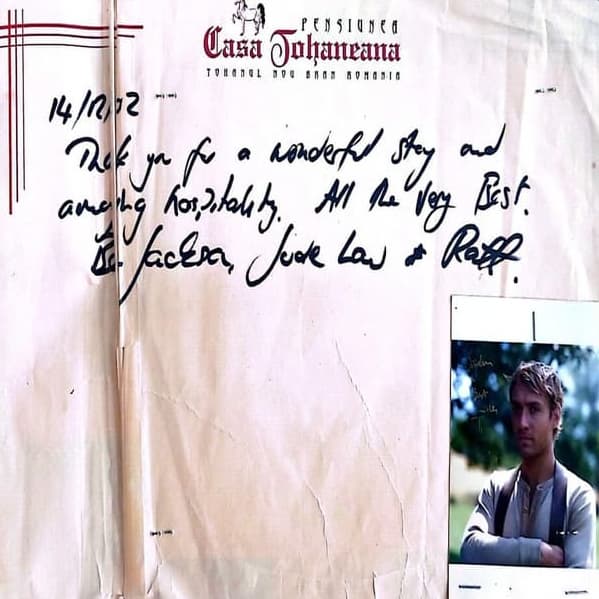 PENSIUNEA
Casa Tohaneana
TOHANUL NOU BRAN ROMANIA
14/12/02
Thank you for a wonderful stay and
amazing hospitality. All the Very Best.
Ben Jackson, Jude Law & Raff.